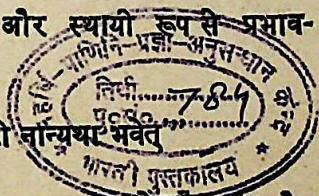 और स्थायी रूप से प्रभाव-
पाणिनि-प्रज्ञा-अनुसन्धान
तिथि
784
नान्यथा भवेत्
भारती पुस्तकालय